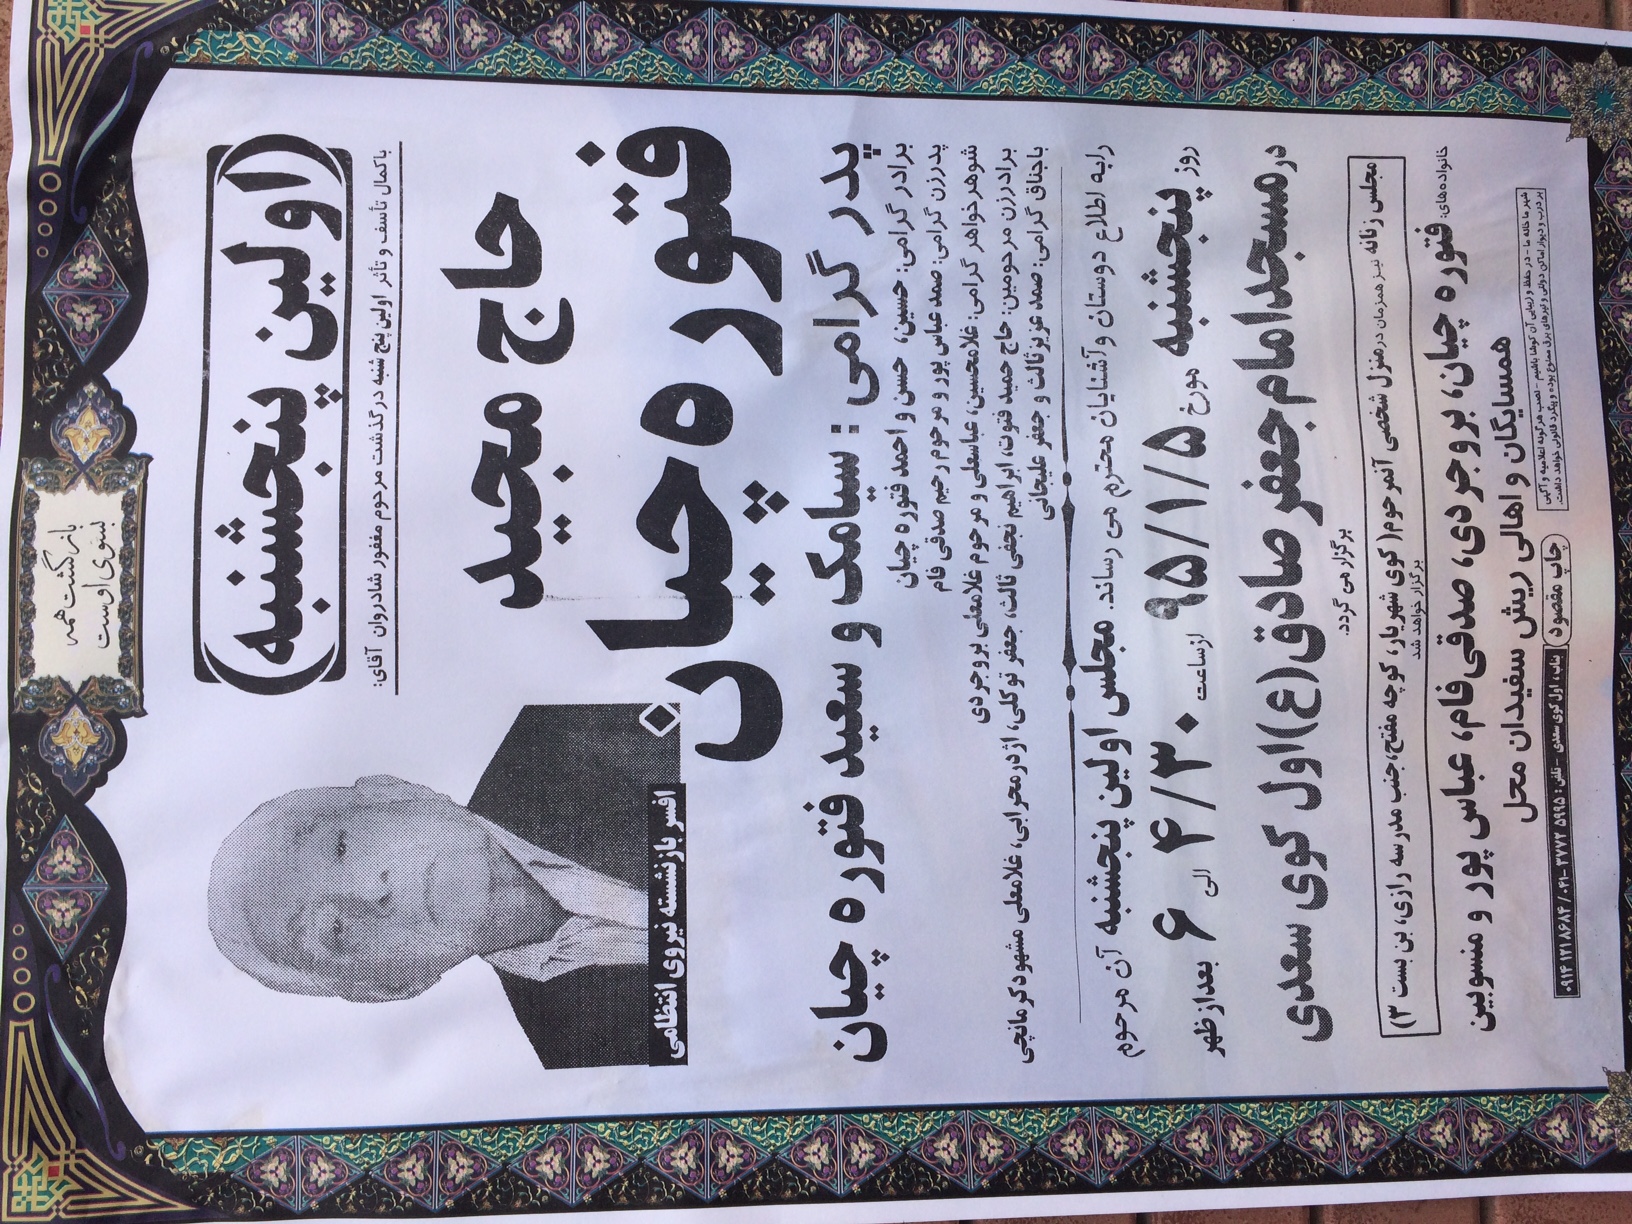 بازگشت همه
بسوی اوست
(اولین پنجشنبه)
باکمال تأسف و تأثر اولین پنج شنبه درگذشت مرحوم مغفور شادروان آقای:
حاج مجید
فتوره چیان
افسر بازنشسته نیروی انتظامی
پدر گرامی: سیامک و سعید فتوره چیان
برادر گرامی: حسین، حسن و احمد فتوره چیان
پدرزن گرامی: صمد عباس پور و مرحوم رحیم صدقی فام
شوهرخواهر گرامی: غلامحسین، عباسعلی و مرحوم غلامعلی بروجردی
برادرزن مرحومین: حاج حمید فتوت، ابراهیم نجفی ثالث، جعفر توکلی، اژدر محرابی، غلامعلی مشهود کرمانچی
باجناق گرامی: صمد عزیز ثالث و جعفر علیجانی
رابه اطلاع دوستان وآشنایان محترم می رساند. مجلس اولین پنجشنبه آن مرحوم
روز پنجشنبه مورخ ۹۵/۱/۵ ازساعت ۴/۳۰ الی ۶ بعدازظهر
درمسجدامام جعفرصادق(ع)اول کوی سعدی
برگزار می گردد.
مجلس زنانه نیز همزمان در منزل شخصی آنمرحوم( کوی شهریار، کوچه مفتح،جنب مدرسه رازی، بن بست ۳)
برگزار خواهد شد
خانواده های: فتوره چیان، بروجردی، صدقی فام، عباس پور و منسوبین
همسایگان و اهالی ریش سفیدان محل
شهر ما خانه ما - در حفظ و زیبایی آن کوشا باشیم - نصب هرگونه اعلامیه و آگهی
بر درب و دیوار اماکن دولتی و تیرهای برق ممنوع بوده و پیگرد قانونی خواهد داشت.
چاپ مقصود
بناب، اول کوی سعدی - تلفن: ۵۹۹۵ ۳۷۷۲-۰۴۱ / ۸۶۸۴ ۱۲۱ ۰۹۱۴